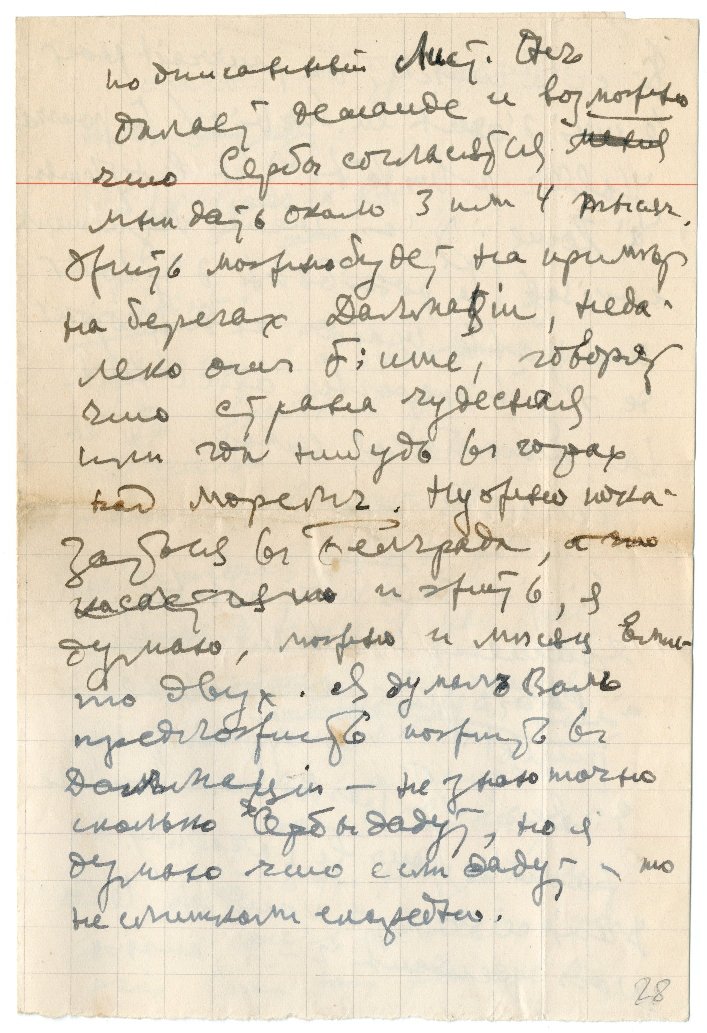 подписанный лист. Онъ
дѣлаетъ demande и возможно
что Сербы согласятся
дать около 3 или 4 тысяч,
жить можно будетъ на примѣр
на берегах Далмаціи, неда-
леко отъ , говорят
что страна чудесная
или гдѣ нибудь въ горах
над моремъ. Нужно пока-
заться въ Белградѣ, а что
касается и жить, я
думаю, можно и мѣсяц вмѣс-
то двух. Я думалъ Вамъ
предложить пожить въ
Далмаціи – не знаю точно
сколько Сербы дадут, но я
думаю что если дадут – то
не слишком скаредно.
28